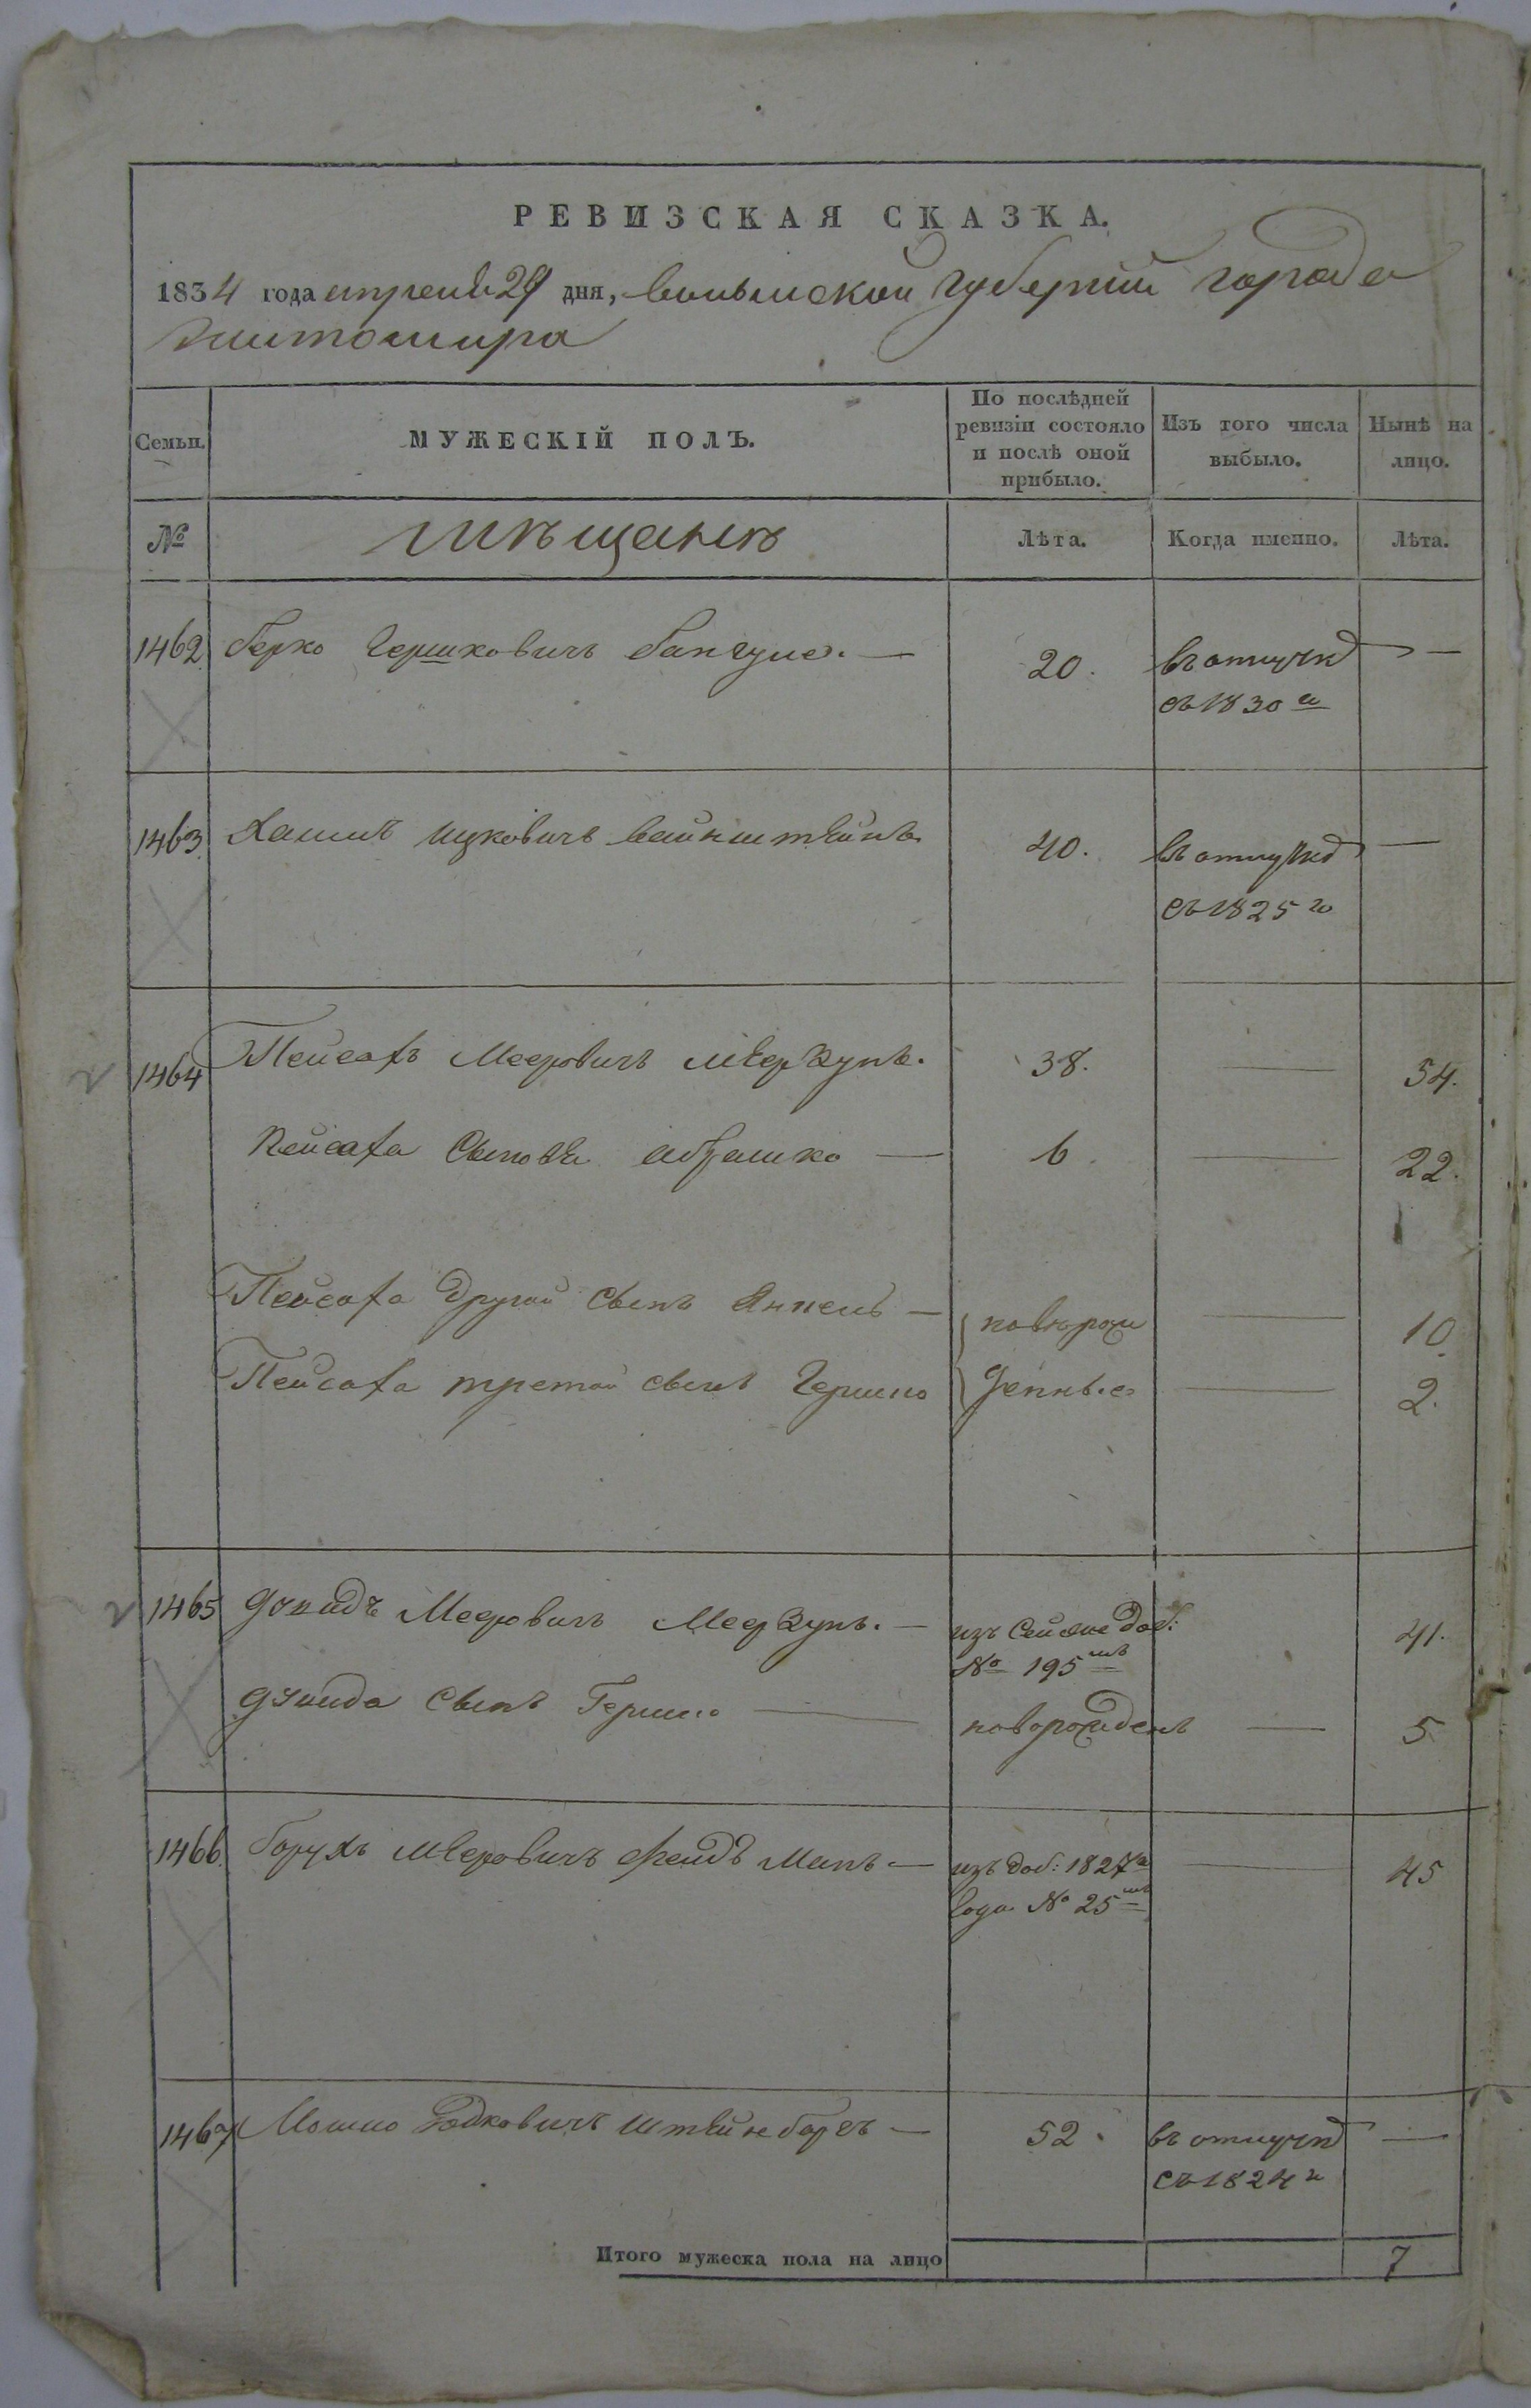 РЕВИЗСКАЯ СКАЗКА.
1834 года апреля 29 дня, волынской губернии города
житомира
Семьи.
МУЖЕСКІЙ ПОЛЪ.
По послѣдней ревизіи состояло и послѣ оной прибыло.
Изъ того числа выбыло.
Нынѣ на лицо.
№
мѣщанѣ
Лѣта.
Когда именно.
Лѣта.
1462 Берко Гершковичъ — 20. въ отлучкѣ —
съ 1830 го
1463. Хаимъ Ицковичъ вайнштейнъ 40. въ отлучкѣ —
съ 1825 го
1464 Пейсахъ Мееровичъ 38. — 54.
Пейсаха Сыновья абрамко — 6. — 22.
Пейсаха другой сынъ Янкель — новорож — 10.
Пейсаха третой сынъ Гершко денные — 2.
1465 Мееровичъ — изъ доб: 41.
№ 195
сынъ Гершко — новорожденъ — 5
1466. борухъ мееровичъ фельдманъ — изъ доб: 1827 го — 45
года № 25
1467 Мошко штейнбергъ — 52. въ отлучкѣ —
съ 1824 го
Итого мужеска пола на лицо 7